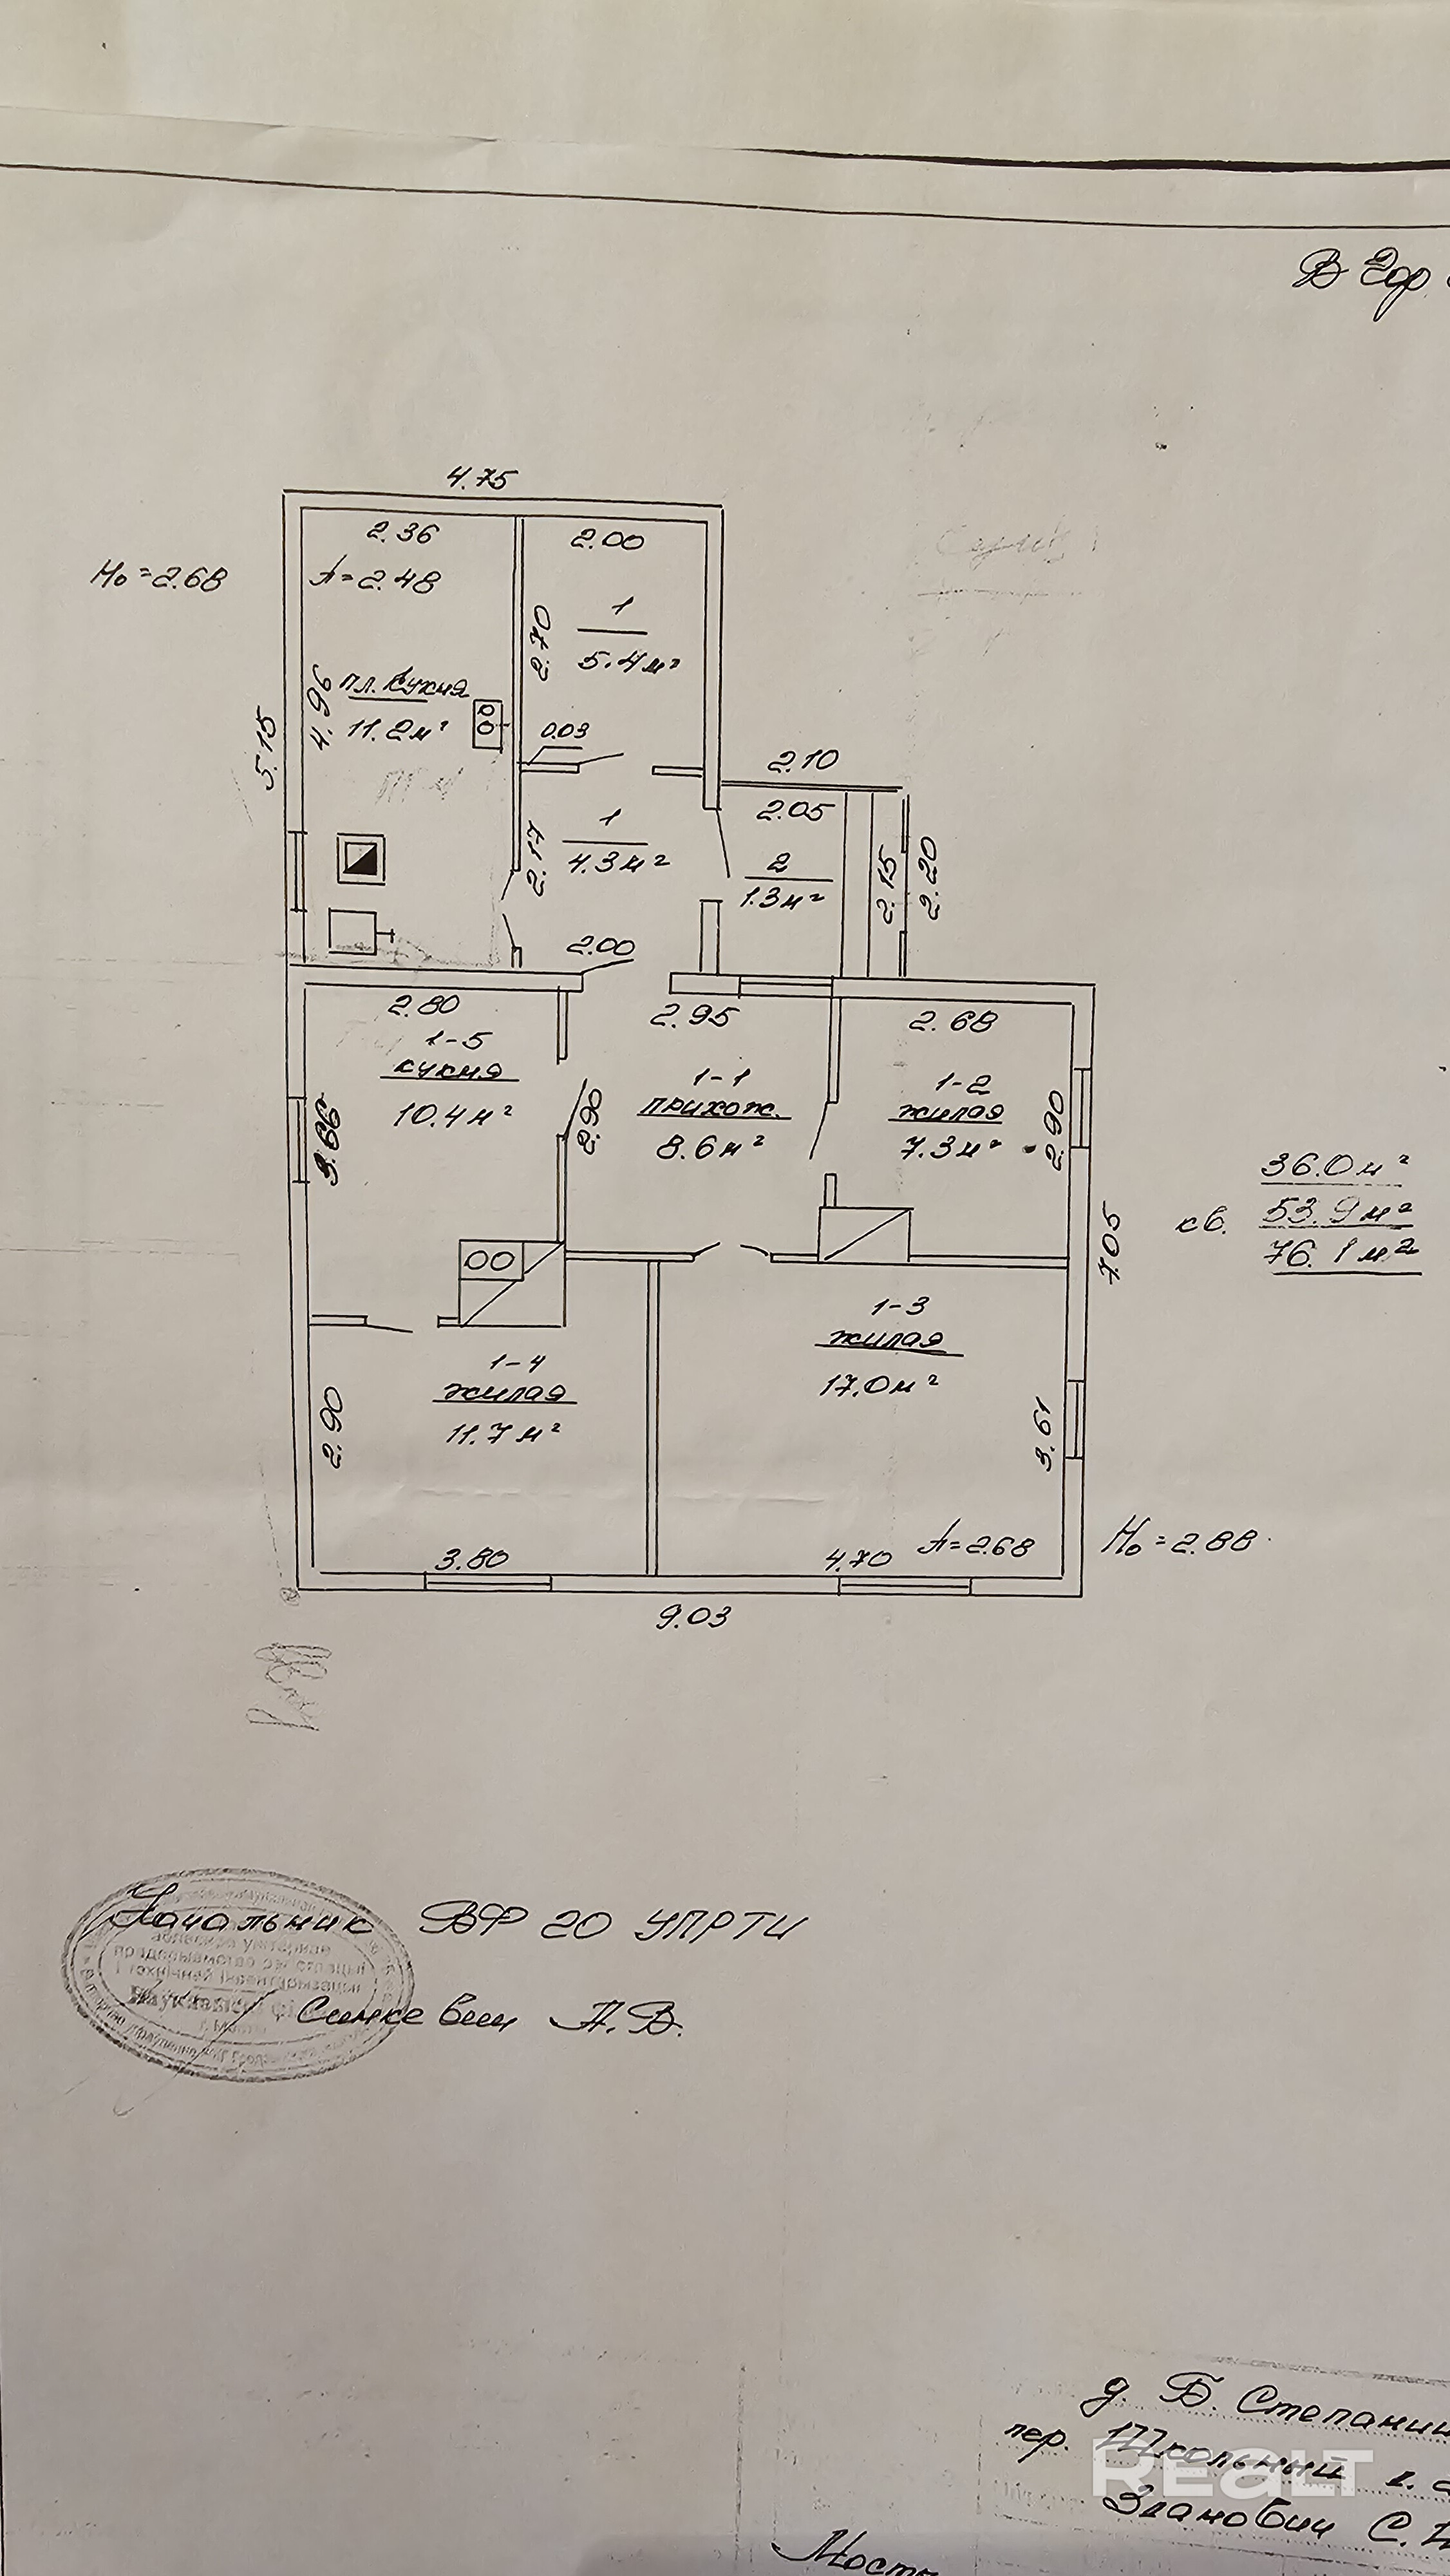 В Гор
4.75
2.36
2.00
Hо=2.68
h=2.48
1
2.70
5.4м²
пл. кухня
4.96
11.2м²
5.15
0.03
2.10
2.05
1
4.3м²
2.17
2
1.3м²
2.15
2.20
2.00
2.80
2.95
2.68
1-5
кухня
10.4м²
3.66
2.90
1-1
прихож.
8.6м²
1-2
жилая
7.3м²
2.90
36.0м²
кв. 53.9м²
76.1м²
7.05
1-3
жилая
17.0м²
1-4
жилая
11.7м²
2.90
3.61
3.80
4.70
h=2.68
Hо=2.88
9.03
Начальник ВФ ГО УПРТИ
Синкевич А.В.
д. Б. Степаниш
пер. Школьный
REALT
Зданович С.
Мость